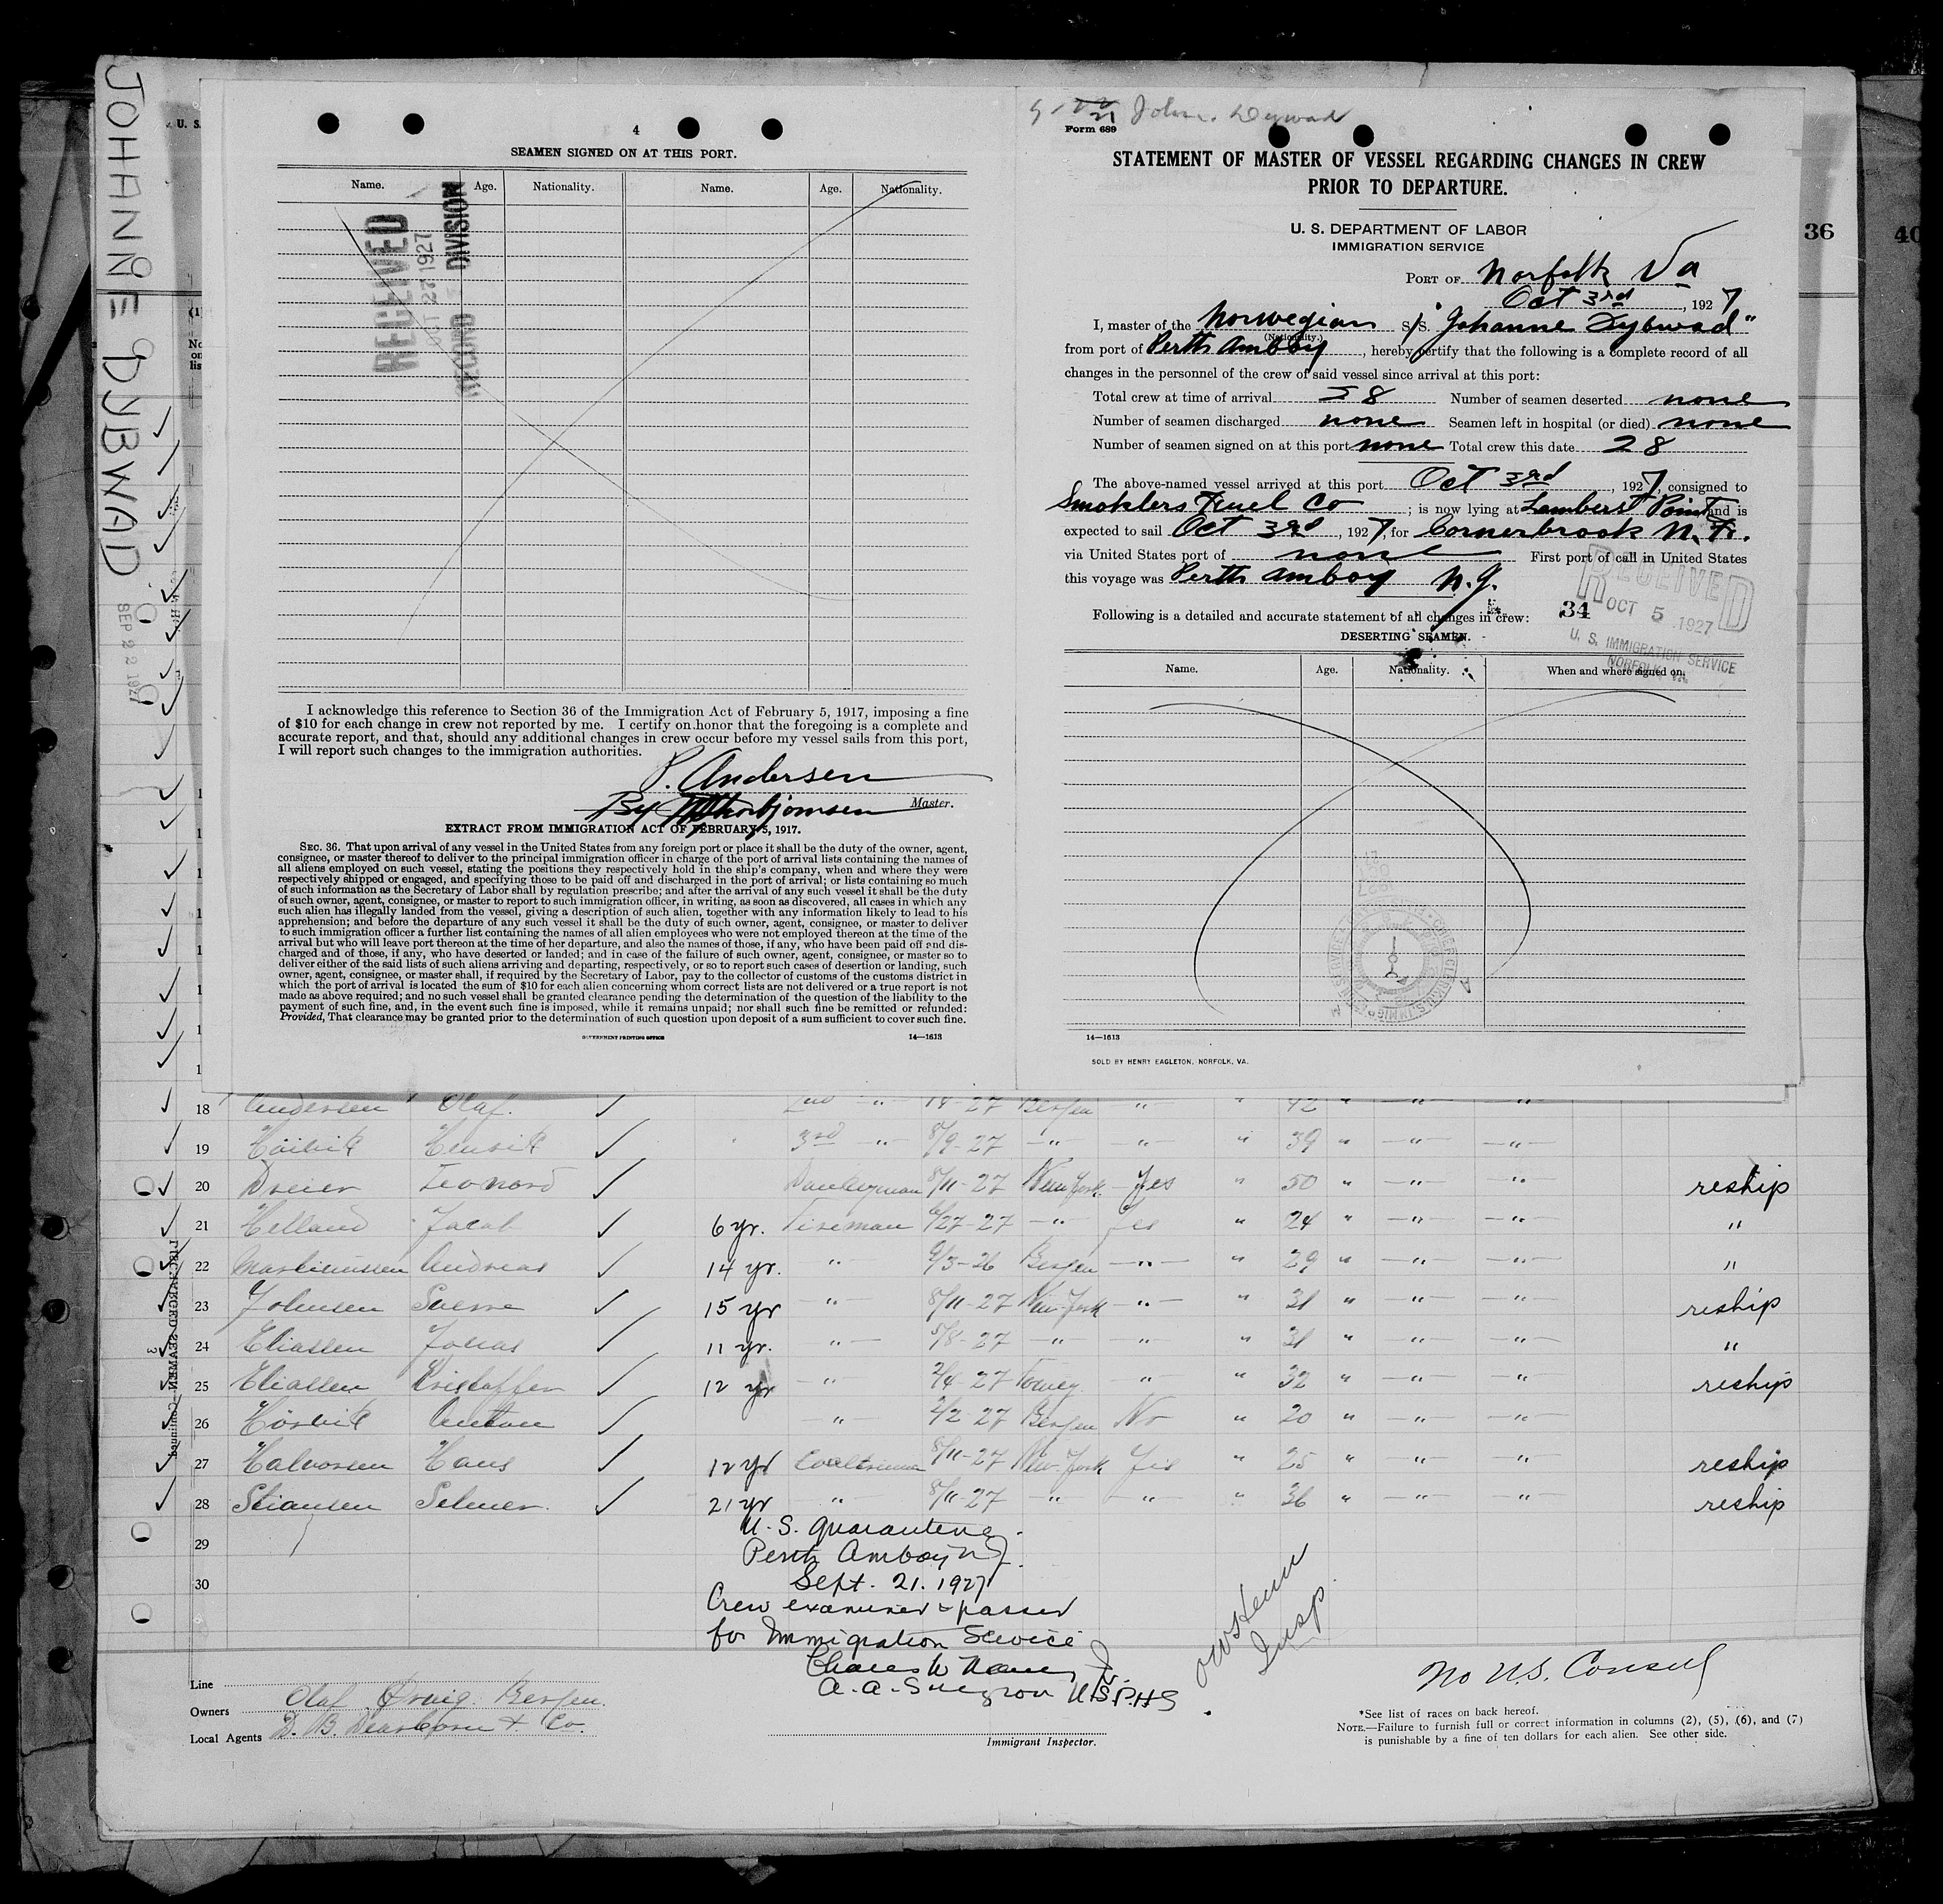 JOHANNE DYBWAD
SEP 22 1927
U. S.
4
SEAMEN SIGNED ON AT THIS PORT.
Name. Age. Nationality. Name. Age. Nationality.
RECEIVED
OCT 27 1927
RECORD DIVISION
I acknowledge this reference to Section 36 of the Immigration Act of February 5, 1917, imposing a fine
of $10 for each change in crew not reported by me. I certify on honor that the foregoing is a complete and
accurate report, and that, should any additional changes in crew occur before my vessel sails from this port,
I will report such changes to the immigration authorities.
P. Andersen
By Thorbjornsen Master.
EXTRACT FROM IMMIGRATION ACT OF FEBRUARY 5, 1917.
SEC. 36. That upon arrival of any vessel in the United States from any foreign port or place it shall be the duty of the owner, agent,
consignee, or master thereof to deliver to the principal immigration officer in charge of the port of arrival lists containing the names of
all aliens employed on such vessel, stating the positions they respectively hold in the ship's company, when and where they were
respectively shipped or engaged, and specifying those to be paid off and discharged in the port of arrival; or lists containing so much
of such information as the Secretary of Labor shall by regulation prescribe; and after the arrival of any such vessel it shall be the duty
of such owner, agent, consignee, or master to report to such immigration officer, in writing, as soon as discovered, all cases in which any
such alien has illegally landed from the vessel, giving a description of such alien, together with any information likely to lead to his
apprehension; and before the departure of any such vessel it shall be the duty of such owner, agent, consignee, or master to deliver
to such immigration officer a further list containing the names of all alien employees who were not employed thereon at the time of the
arrival but who will leave port thereon at the time of her departure, and also the names of those, if any, who have been paid off and dis-
charged and of those, if any, who have deserted or landed; and in case of the failure of such owner, agent, consignee, or master so to
deliver either of the said lists of such aliens arriving and departing, respectively, or so to report such cases of desertion or landing, such
owner, agent, consignee, or master shall, if required by the Secretary of Labor, pay to the collector of customs of the customs district in
which the port of arrival is located the sum of $10 for each alien concerning whom correct lists are not delivered or a true report is not
made as above required; and no such vessel shall be granted clearance pending the determination of the question of the liability to the
payment of such fine, and, in the event such fine is imposed, while it remains unpaid; nor shall such fine be remitted or refunded:
Provided, That clearance may be granted prior to the determination of such question upon deposit of a sum sufficient to cover such fine.
GOVERNMENT PRINTING OFFICE 14—1613
Form 689
STATEMENT OF MASTER OF VESSEL REGARDING CHANGES IN CREW
PRIOR TO DEPARTURE.
U. S. DEPARTMENT OF LABOR
IMMIGRATION SERVICE
PORT OF Norfolk Va
Oct 3rd, 1927
I, master of the Norwegian S/S. "Johanne Dybwad"
(Nationality.)
from port of Perth Amboy, hereby certify that the following is a complete record of all
changes in the personnel of the crew of said vessel since arrival at this port:
Total crew at time of arrival 28 Number of seamen deserted none
Number of seamen discharged none Seamen left in hospital (or died) none
Number of seamen signed on at this port none Total crew this date 28
The above-named vessel arrived at this port Oct 3rd, 1927, consigned to
Smoklers Fuel Co; is now lying at Lamberts Point and is
expected to sail Oct 3rd, 1927, for Cornerbrook N.F.
via United States port of none First port of call in United States
this voyage was Perth Amboy N.J.
Following is a detailed and accurate statement of all changes in crew:
34
RECEIVED
OCT 5 1927
U. S. IMMIGRATION SERVICE
NORFOLK VA.
DESERTING SEAMEN.
Name. Age. Nationality. When and where signed on.
14—1613
SOLD BY HENRY EAGLETON, NORFOLK, VA.
36
40
DISCHARGED SEAMEN—Continued
3
18 Andersen Olaf. 2nd " 27 Bergen " " 42 " " "
19 Henrik 3rd " 8/9-27 " " " 39 " " "
20 Dreier Leonard Donkeyman 8/11-27 New York Yes " 50 " " " reship
21 Helland Jacob 6 yr. Fireman 6/27-27 " Yes " 24 " " " "
22 Martinussen Andreas 14 yr. " 9/3-26 Bergen " " 29 " " " "
23 Johnsen Sverre 15 yr " 8/11-27 New York " " 31 " " " reship
24 Eliassen Jonas 11 yr. " 5/8-27 " " " 31 " " " "
25 Eliassen Kristoffer 12 yr " 2/4-27 " " 32 " " " reship
26 Anton " 2/2-27 Bergen No " 20 " " "
27 Halvorsen Hans 12 yr Coaltrimmer 8/11-27 New York Yes " 25 " " " reship
28 Stiansen Selmer. 21 yr " 8/11-27 " " " 36 " " " reship
29
30
U.S. Quarantine
Perth Amboy NJ.
Sept. 21. 1927
Crew examined & passed
for Immigration Service
A. A. Surgeon USPHS
Insp.
No U.S. Consul
Line
Owners Olaf Ørvig. Bergen.
Local Agents D. B. Dearborn & Co.
Immigrant Inspector.
*See list of races on back hereof.
NOTE.—Failure to furnish full or correct information in columns (2), (5), (6), and (7)
is punishable by a fine of ten dollars for each alien. See other side.